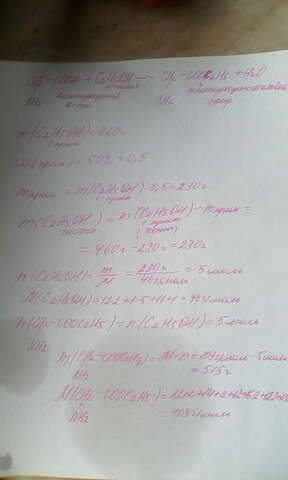 CH₂ - COOH + C₂H₅OH ⟶ CH₂ - COOC₂H₅ + H₂O
NH₂ аминоуксусная к-та этанол NH₂ аминоуксусноэтиловый эфир
m(C₂H₅OH) = 460г
с прим
ω(прим) = 50% = 0,5
mприм = m(C₂H₅OH)·0,5 = 230г
с прим
m(C₂H₅OH) = m(C₂H₅OH) - mприм =
чистого
= 460г - 230г = 230г
n(C₂H₅OH) = m/M = 230г/46г/моль = 5 моль
M(C₂H₅OH) = 12·2 + 1·5 + 16 + 1 = 46г/моль
n(CH₂ - COOC₂H₅) = n(C₂H₅OH) = 5 моль
NH₂
m(CH₂ - COOC₂H₅) = M·n = 103г/моль · 5 моль
NH₂ = 515г
M(CH₂ - COOC₂H₅) =
NH₂ = 103г/моль